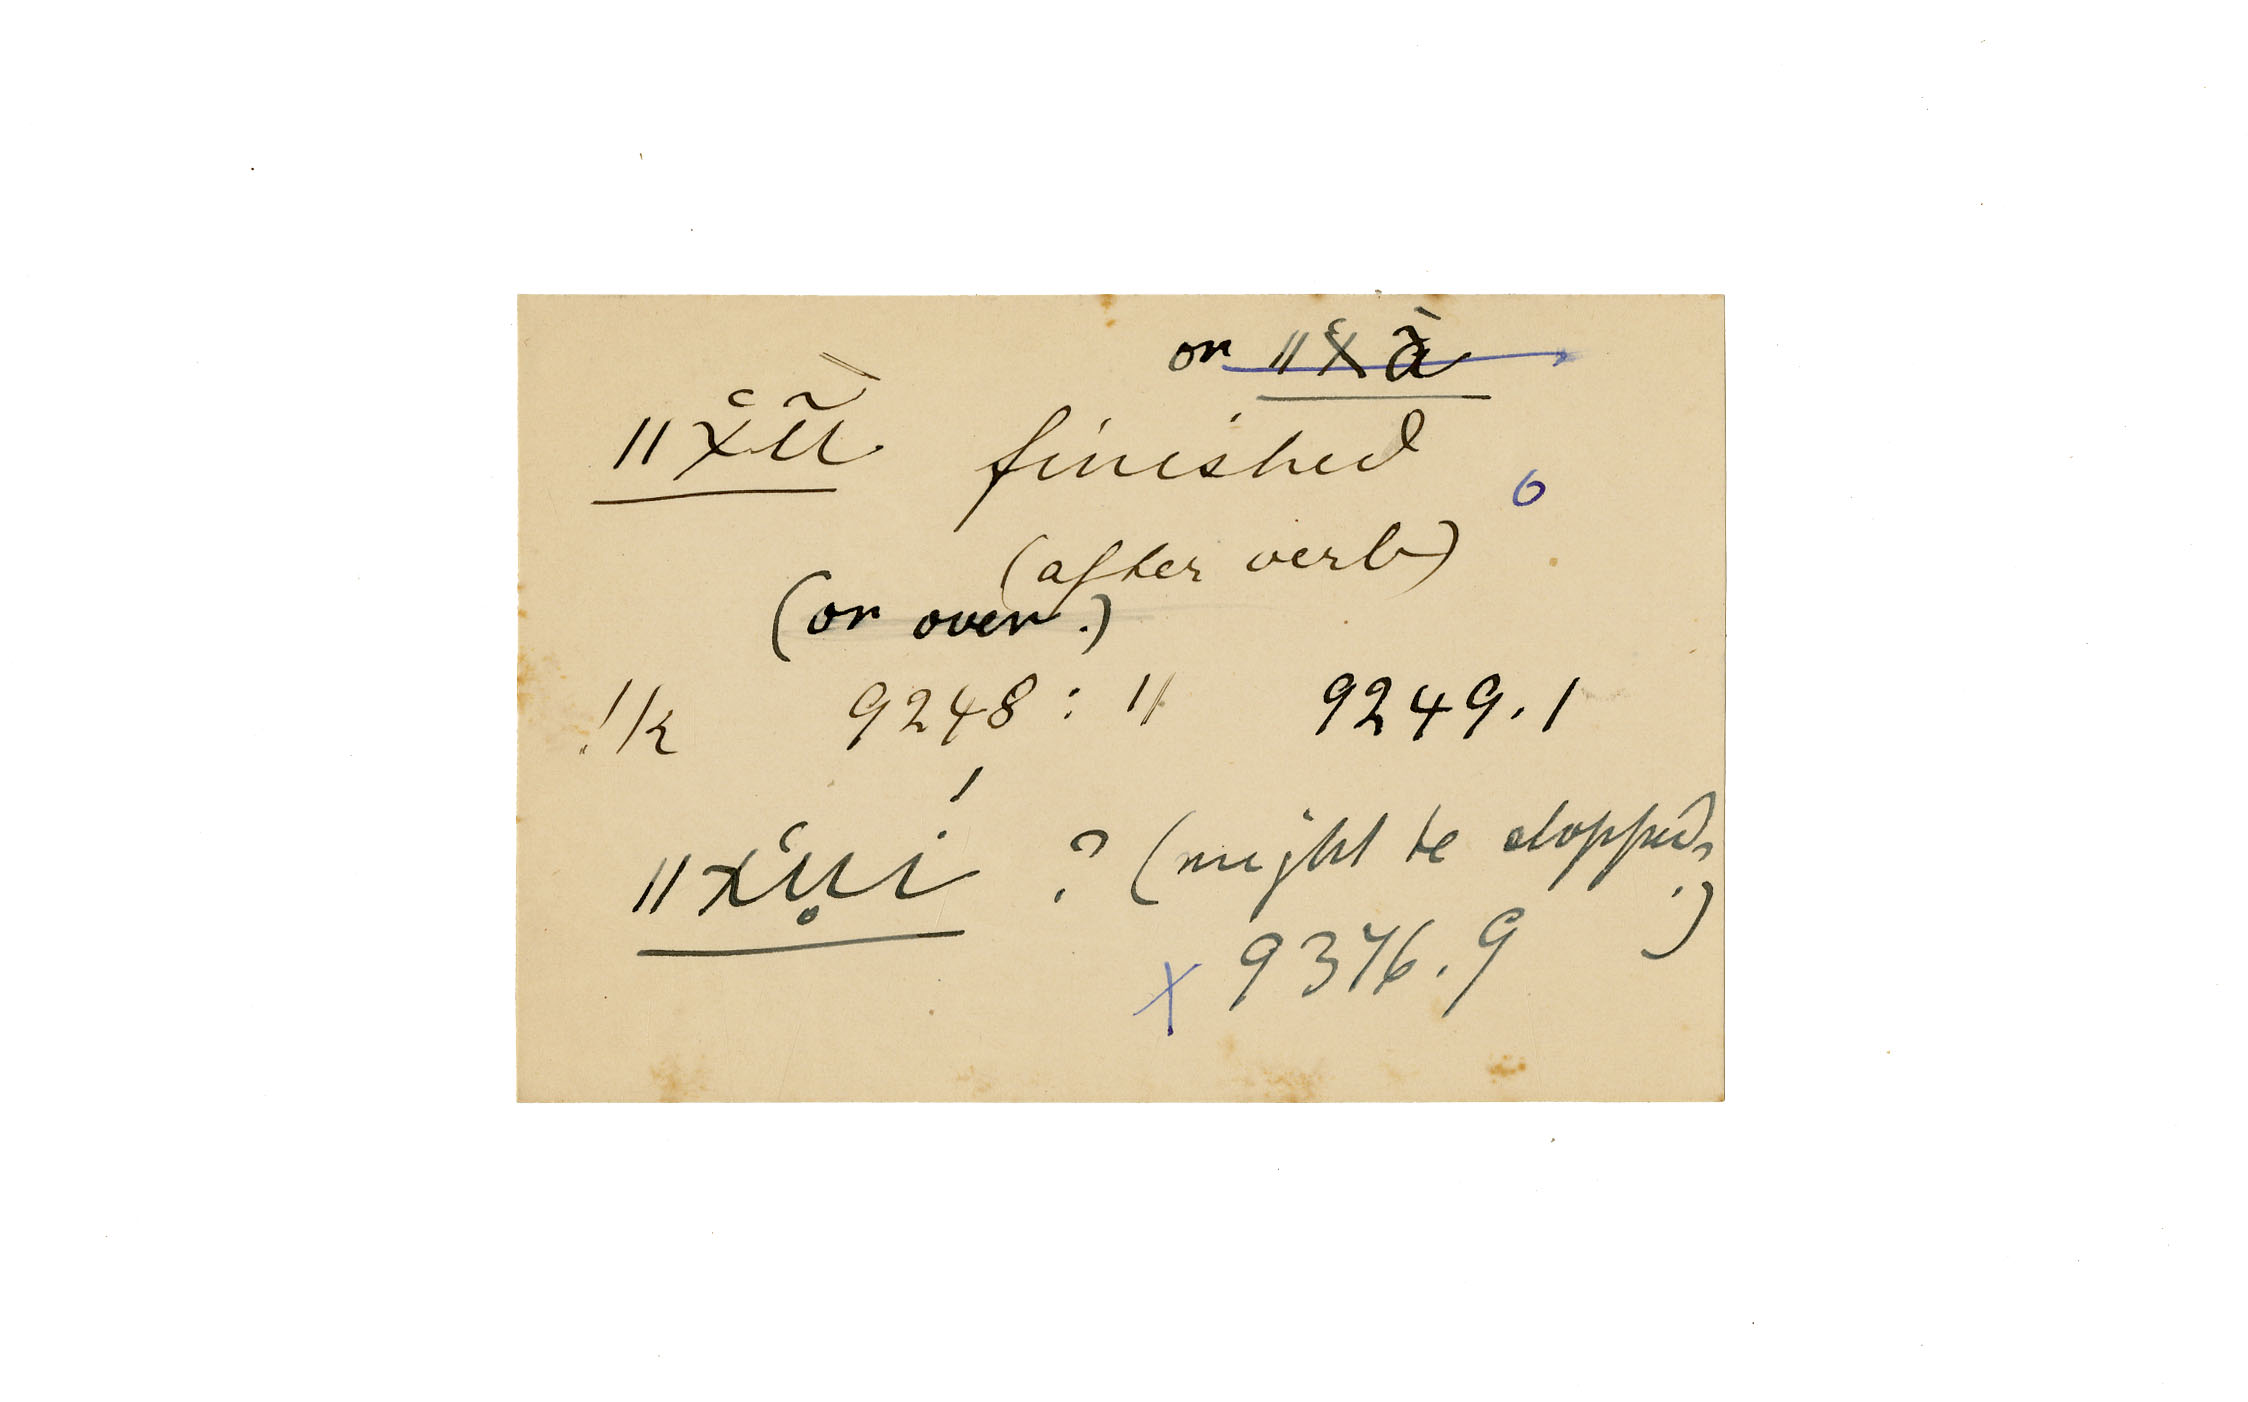 or ǁx̆ã̀
ǁx̆ũ̀ finished
6
(after verb)
(or over.)
!k 9248: 11 9249.1
ǁx̆ụí ? (might be stopped.)
x 9376.9